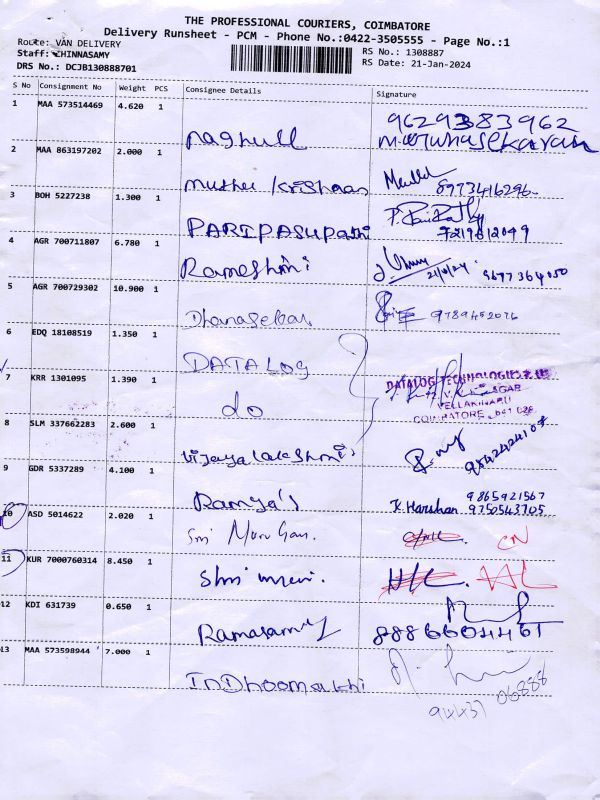 THE PROFESSIONAL COURIERS, COIMBATORE
Delivery Runsheet - PCM - Phone No.:0422-3505555 - Page No.:1
Route: VAN DELIVERY
RS No.: 1308887
Staff: CHINNASAMY
RS Date: 21-Jan-2024
DRS No.: DCJB130888701
S No Consignment No Weight PCS Consignee Details Signature
1 MAA 573514469 4.620 1
9629383962
naghull
2 MAA 863197202 2.000 1
muthu Krishnan 8973416296
3 BOH 5227238 1.300 1
PARIPASUPathi 7219812049
4 AGR 700711807 6.780 1
Rameshmi 9677364050
5 AGR 700729302 10.900 1
Dhanasekar 9789452076
6 EDQ 18108519 1.350 1
DATALOG
7 KRR 1301095 1.390 1
DATALOG TECHNOLOGIES
do
VELLAKINARU
COIMBATORE
8 SLM 337662283 2.600 1
Vijayalakshmi 9842424107
9 GDR 5337289 4.100 1
Ramya's K. Harshan 9865921567
9750543705
10 ASD 5014622 2.020 1
Sri Murugan. CN
11 KUR 7000760314 8.450 1
Shri
12 KDI 631739 0.650 1
Ramasamy 8886604461
13 MAA 573598944 7.000 1
InDhoomathi
94437 06888